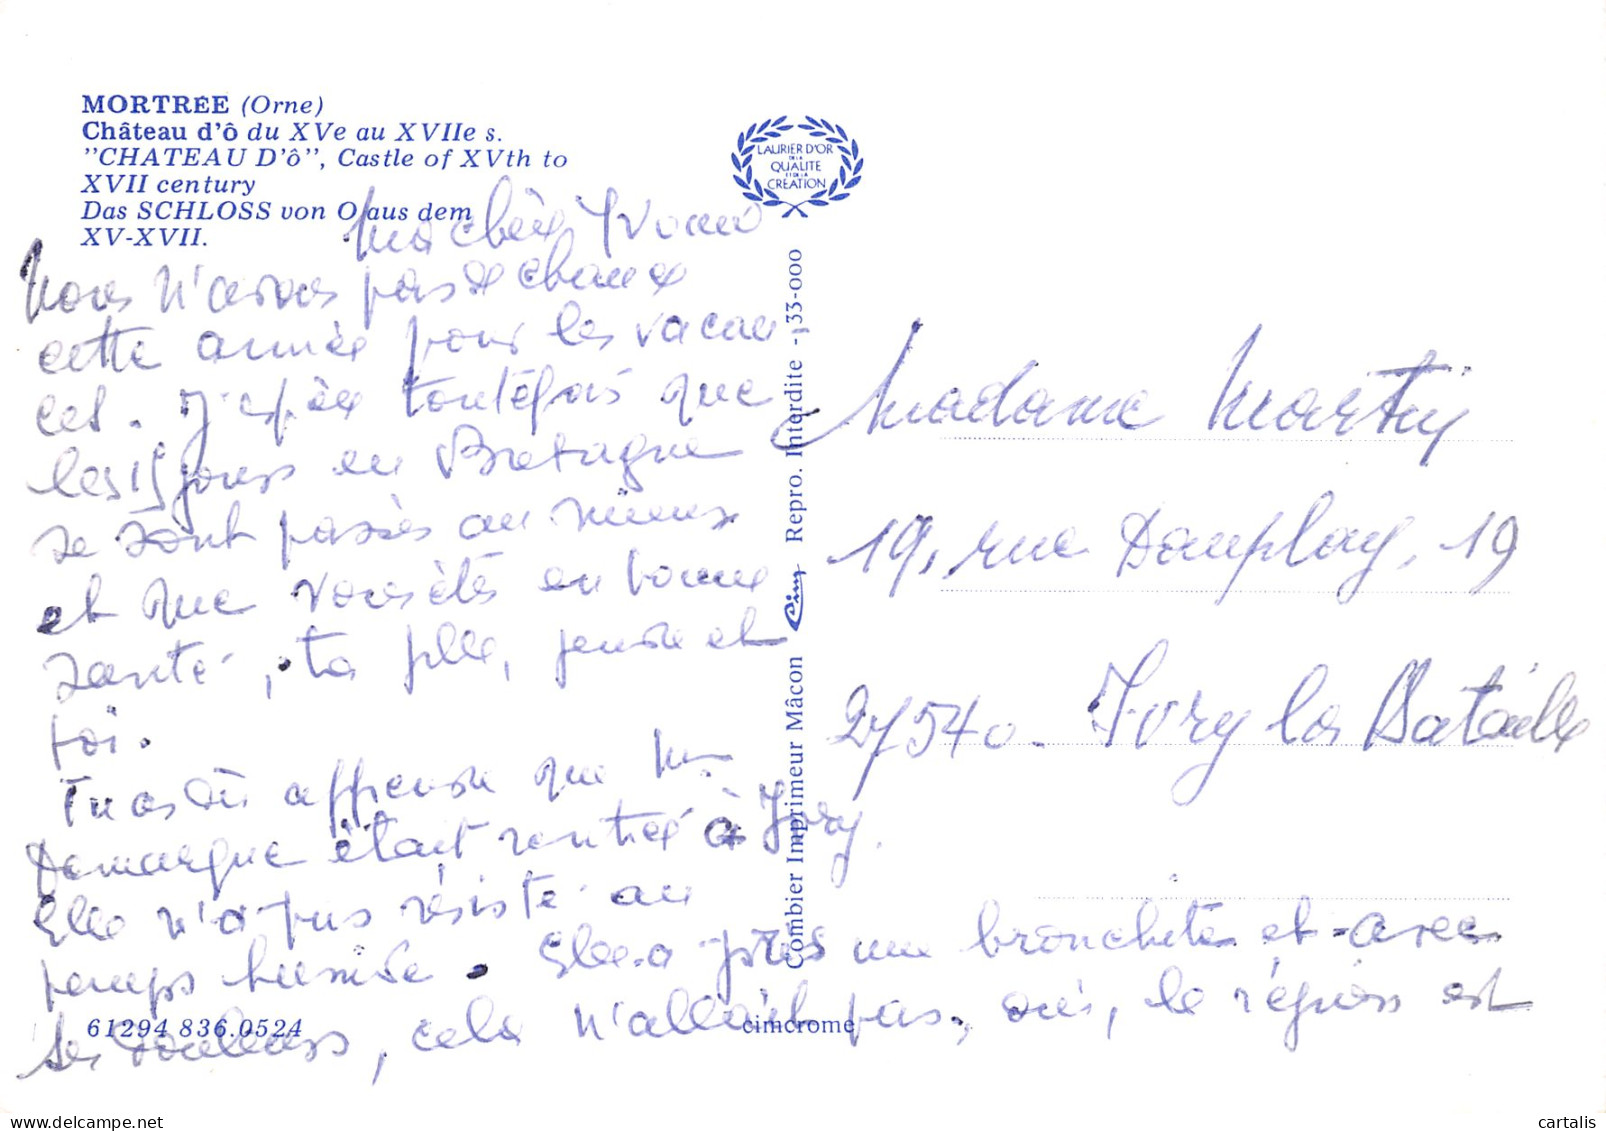 MORTREE (Orne)
Château d'ô du XVe au XVIIe s.
"CHATEAU D'ô", Castle of XVth to
XVII century
Das SCHLOSS von O aus dem
XV-XVII.
LAURIER D'OR
DE LA
QUALITE
ET DE LA
CREATION
Ma chère Yvonne
Nous n'avons pas de chance
cette année pour les vacan
ces. J'espère toutefois que
les 15 jours en Bretagne
se sont passés au mieux
et que vous êtes en bonne
santé, ta fille, et
toi.
Tu as dû apprendre que
Demargne était rentrée à Ivry.
Elle n'a pas résisté au
temps humide. Elle a pris une bronchite et avec
ses douleurs, cela n'allait pas, oui, la région est
Madame Martin
19, rue Dauplay, 19
27540 - Ivry la Bataille
Combier Imprimeur Mâcon Cim Repro. Interdite - 133-000
61294 836.0524
cimcrome
delcampe.net
cartalis